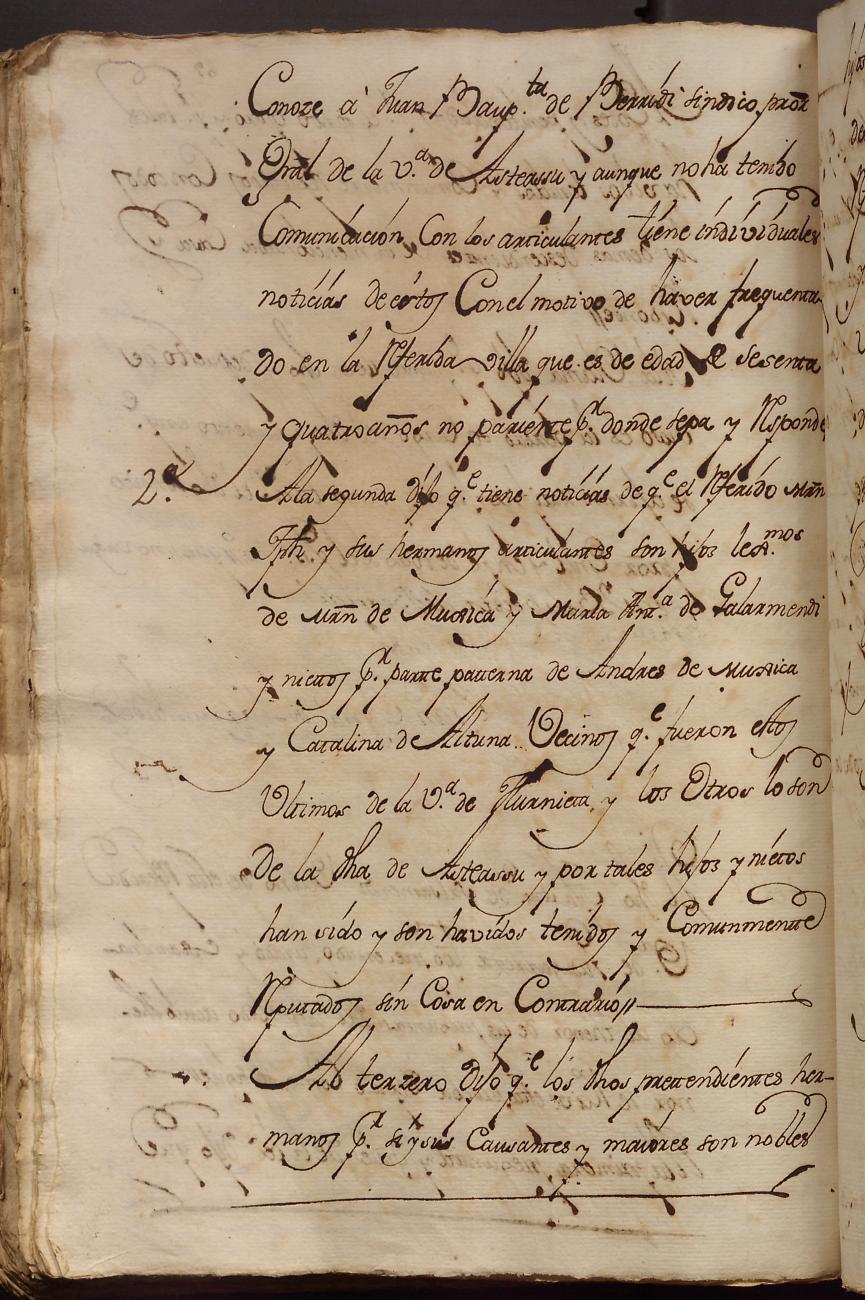 Conoze â Juan Baup.ta de Berridi sindico pror
Gral de la v.a de Asteassu y aunque no ha tenido
Comunicación Con los articulantes tiene individuales
noticias de estos Con el motivo de haver frequenta
do en la Rferida villa que es de edad de sesenta
y quatro años no pariente p.r donde sepa y Rsponde
2.a Ala segunda dijo q.e tiene noticias de q.e el Rferido Mrn
Jph y sus hermanos articulantes son hijos lexmos
de Mrn de Muxica y Maria Ant.a de Galarmendi
y nietos p.r parte paterna de Andres de Muxica
y Catalina de Altuna. Vecinos q.e fueron estos
Ultimos de la V.a de Hurnieta, y los Otros lo son
De la dha de Asteassu y por tales hijos y nietos
han sido y son havidos tenidos y Comunmente
Rputados sin Cosa en Contrario//
Al terzero dijo q.e los dhos pretendientes her-
manos p.r si y sus Causantes y maiores son nobles